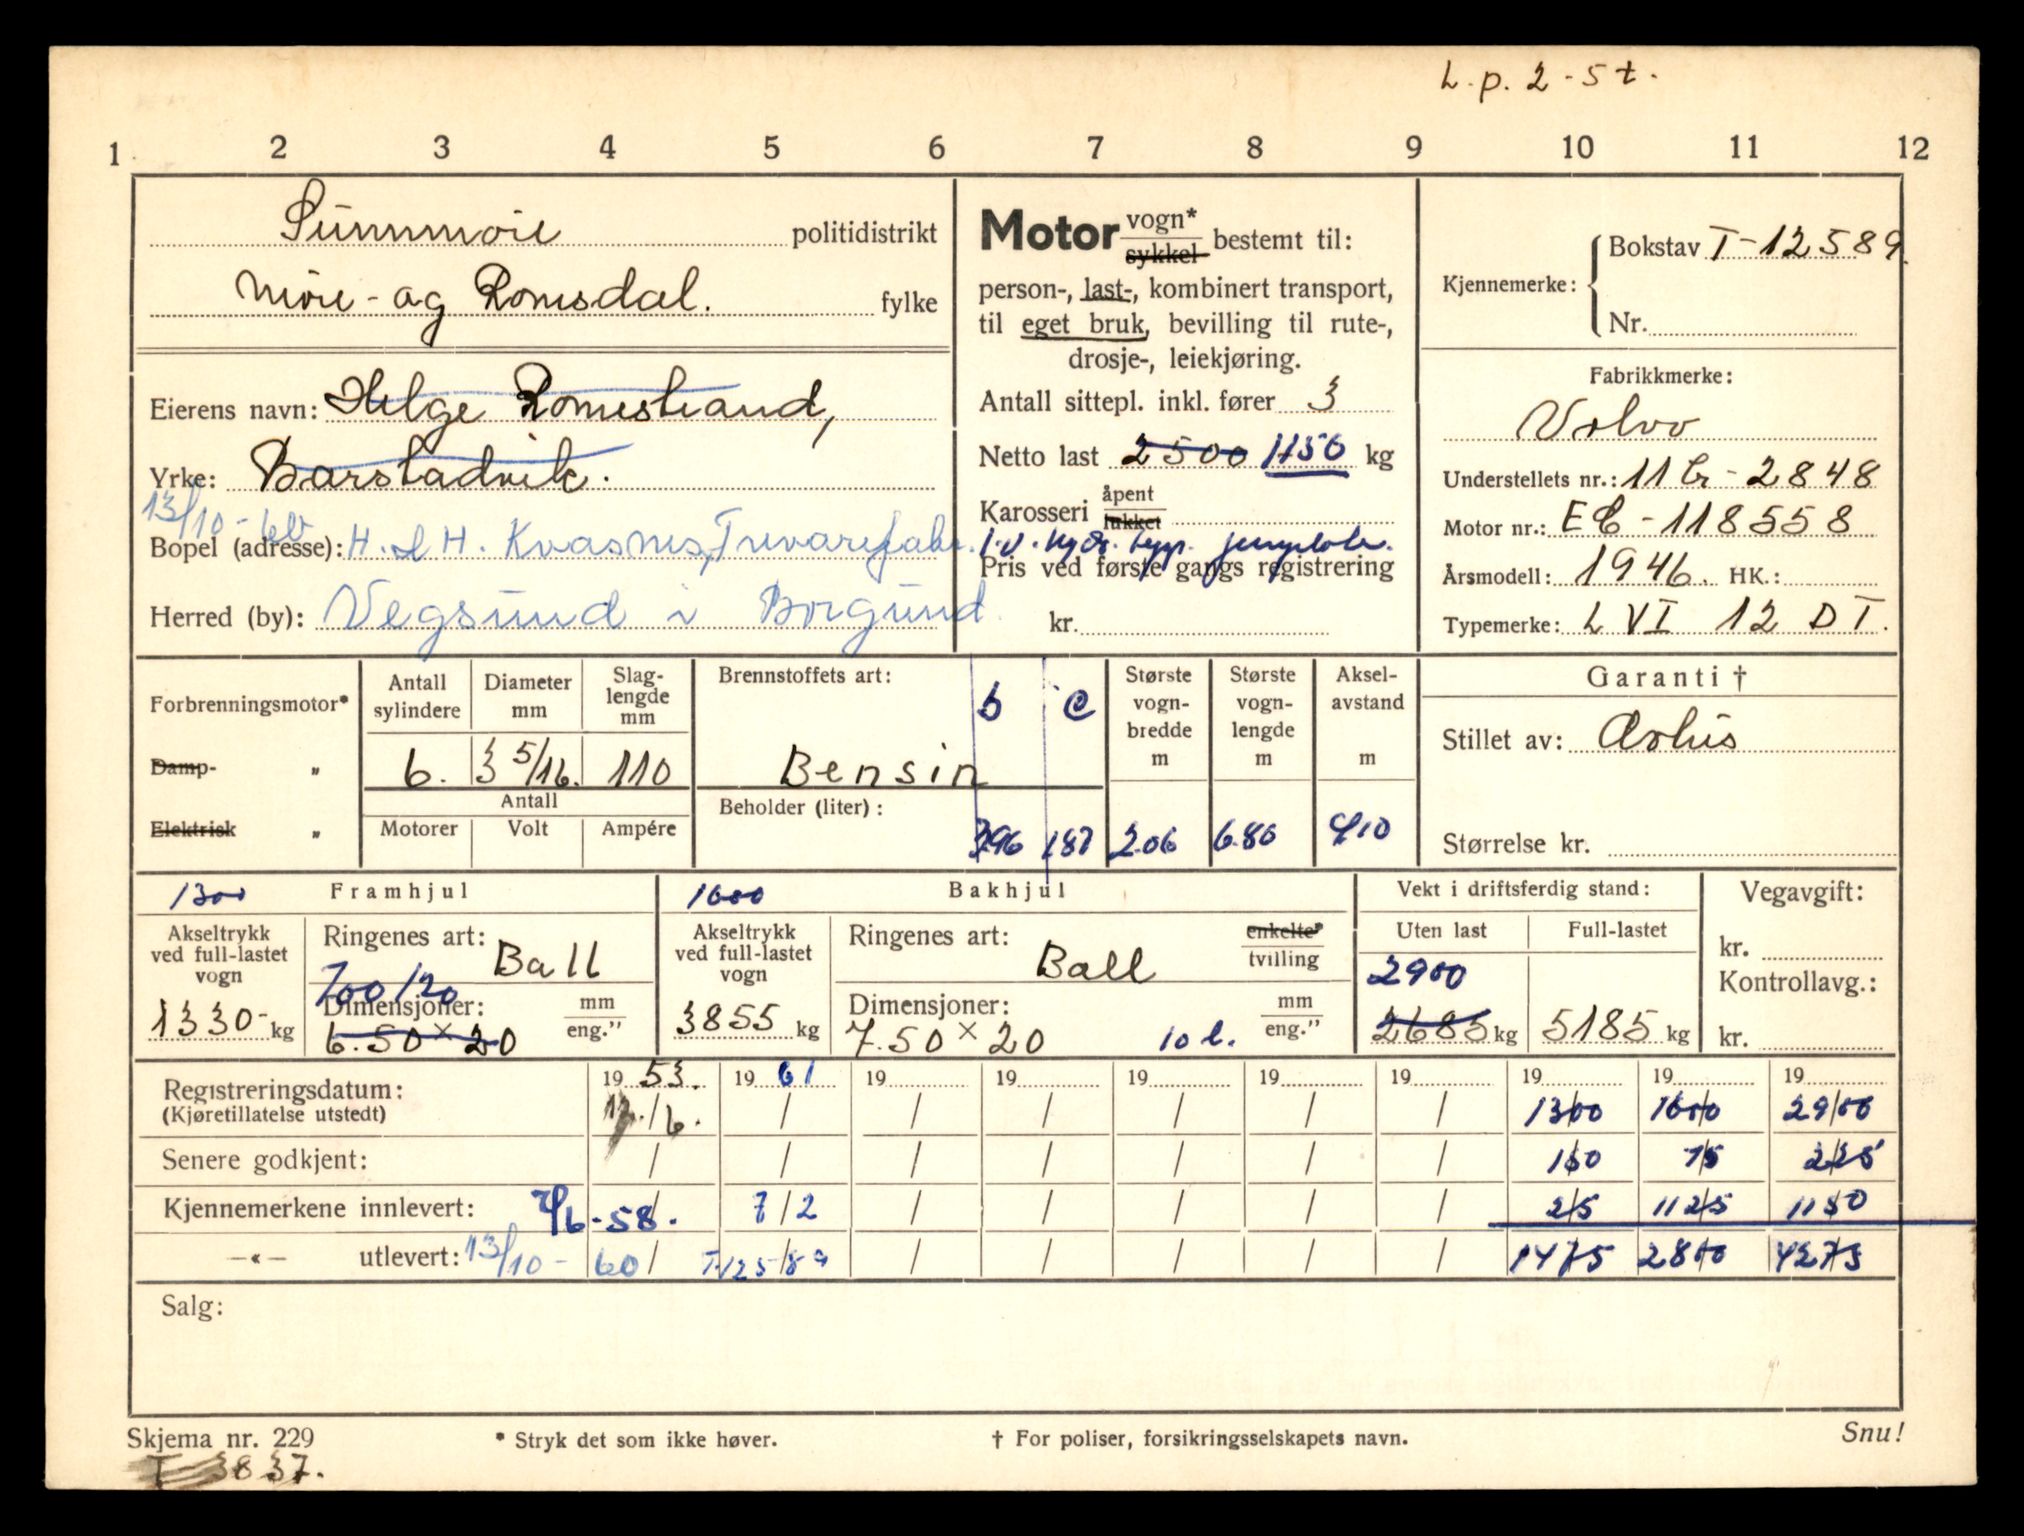 L.p. 2-5 t.
1 2 3 4 5 6 7 8 9 10 11 12
Sunnmøre politidistrikt
Møre- og Romsdal. fylke
Eierens navn: Helge Romestrand,
Yrke: Barstadvik.
13/10-60
Bopel (adresse): H. & H. Kvasnes, Trevarefabr.
Herred (by): Vegsund i Borgund
Motor vogn* sykkel bestemt til:
person-, last-, kombinert transport,
til eget bruk, bevilling til rute-,
drosje-, leiekjøring.
Antall sittepl. inkl. fører 3
Netto last 2500 1150 kg
Karosseri åpent lukket
Pris ved første gangs registrering
kr.
Kjennemerke: Bokstav T-12589
Nr.
Fabrikkmerke:
Volvo
Understellets nr.: 11 - 2848
Motor nr.: EC-118558
Årsmodell: 1946. HK.:
Typemerke: L VI 12 DT.
Forbrenningsmotor* Antall sylindere Diameter mm Slaglengde mm
Damp- „ 6. 3 5/16. 110
Elektrisk „ Antall
Motorer Volt Ampére
Brennstoffets art: b c
Bensin
Beholder (liter): 396 187
Største vognbredde m 2.06
Største vognlengde m 6.80
Akselavstand m 4/10
Garanti †
Stillet av:
Størrelse kr.
1300 Framhjul
Akseltrykk ved full-lastet vogn
1330- kg
Ringenes art: Ball
700/20
Dimensjoner: mm eng."
6.50 x 20
1600 Bakhjul
Akseltrykk ved full-lastet vogn
3855 kg
Ringenes art: Ball enkelte* tvilling
Dimensjoner: mm eng."
7.50 x 20 10 l.
Vekt i driftsferdig stand:
Uten last Full-lastet
2900
2685 kg 5185 kg
Vegavgift:
kr.
Kontrollavg.:
kr.
Registreringsdatum: 19 53. 19 61 19 19 19 19 19 19 19 19
(Kjøretillatelse utstedt) 12./6. / / / / / / 1300 1600 2900
Senere godkjent: / / / / / / / 150 75 225
Kjennemerkene innlevert: 4/6-58. 7/2 / / / / / 25 1125 1150
—«— utlevert: 13/10-60 T-12589 / / / / / 1475 2800 4275
Salg:
Skjema nr. 229 * Stryk det som ikke høver. † For poliser, forsikringsselskapets navn. Snu!
T-3837.